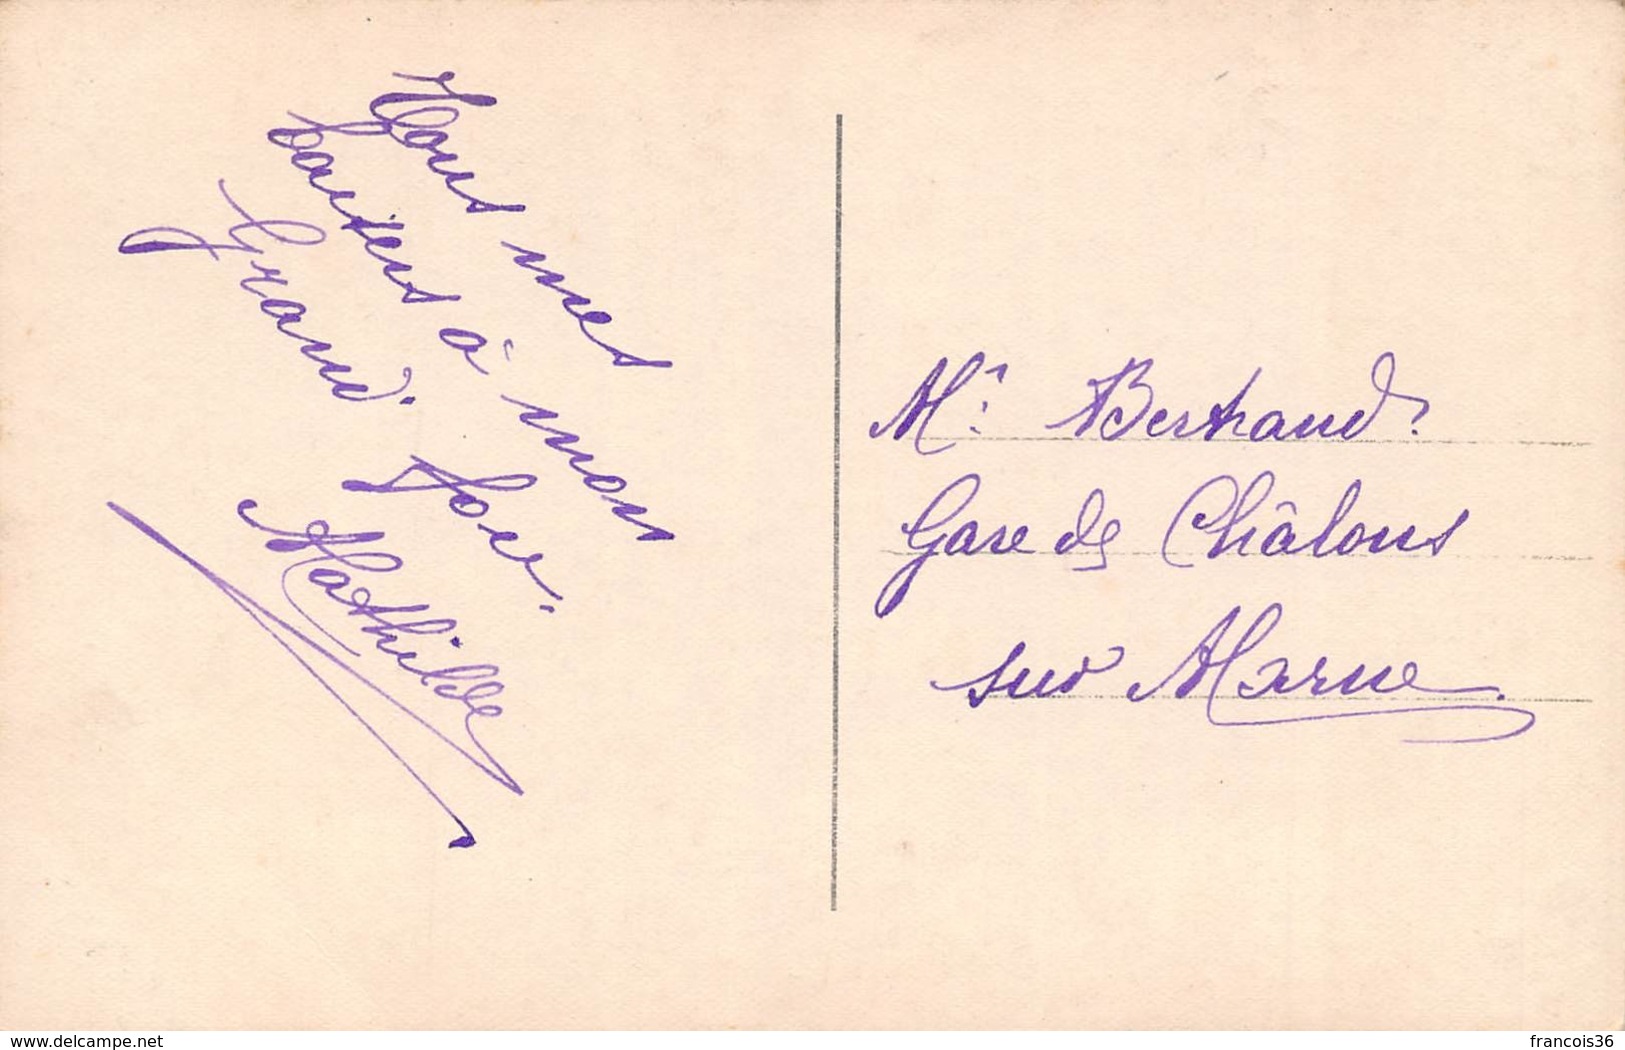 Tous mes
baisers à mon
Grand. Lou.
Mathilde
Mr. Bertrand.
Gare de Châlons
sur Marne.
www.delcampe.net
francois36